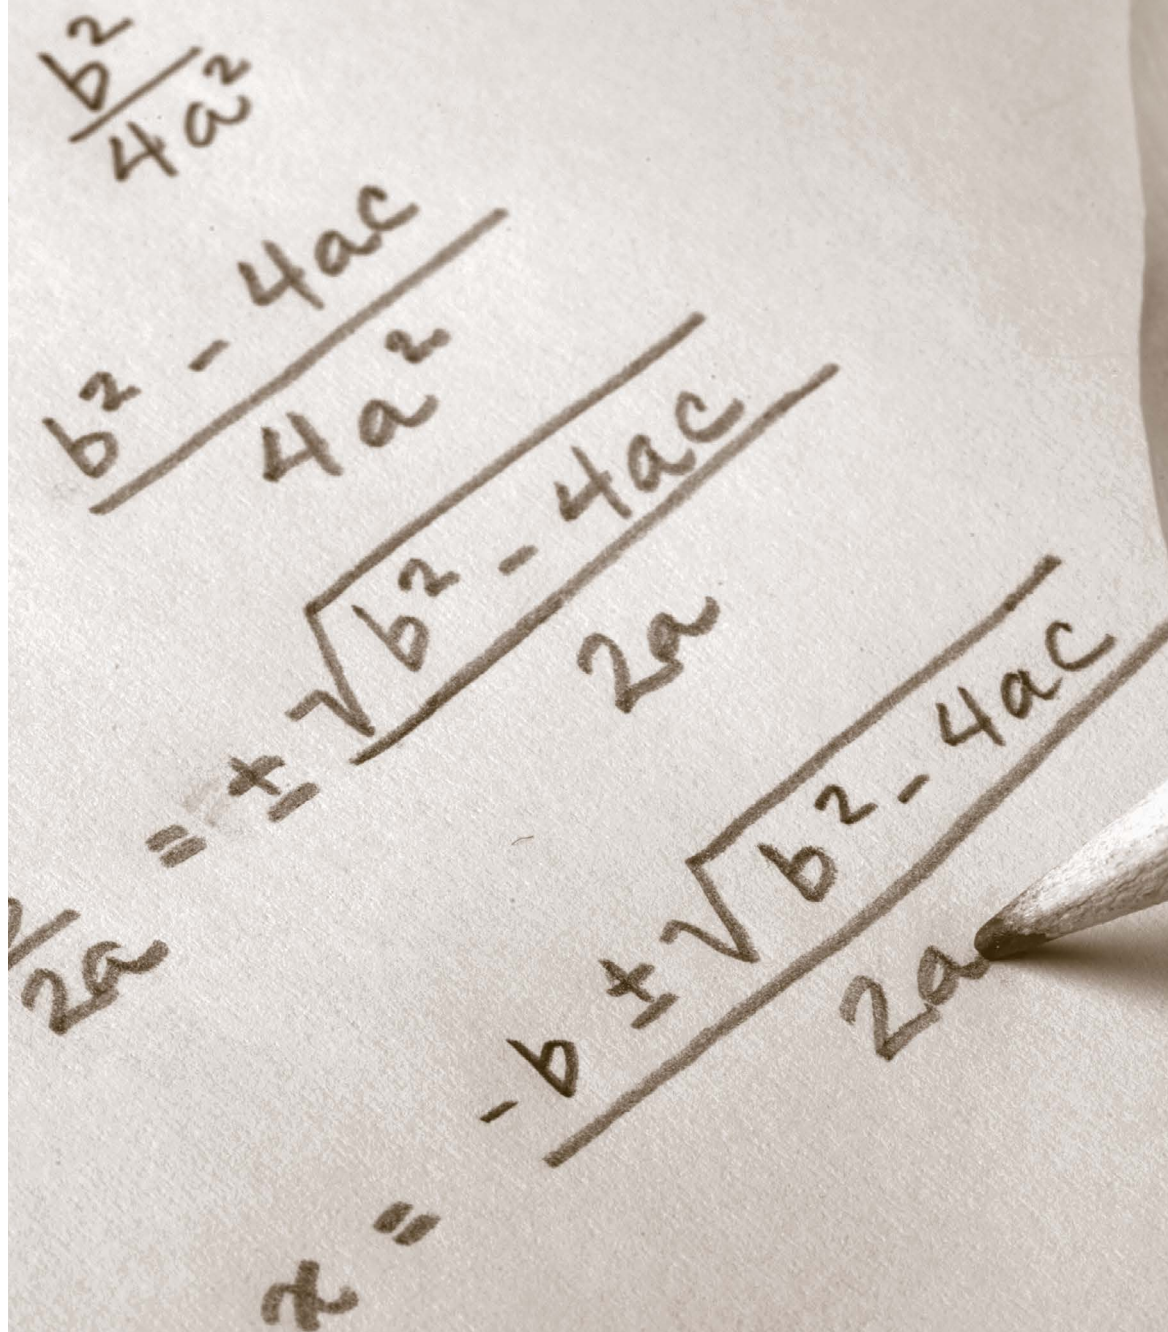 b²/4a²
b² - 4ac/4a²
/2a = ± √(b² - 4ac)/2a
x = -b ± √(b² - 4ac)/2a